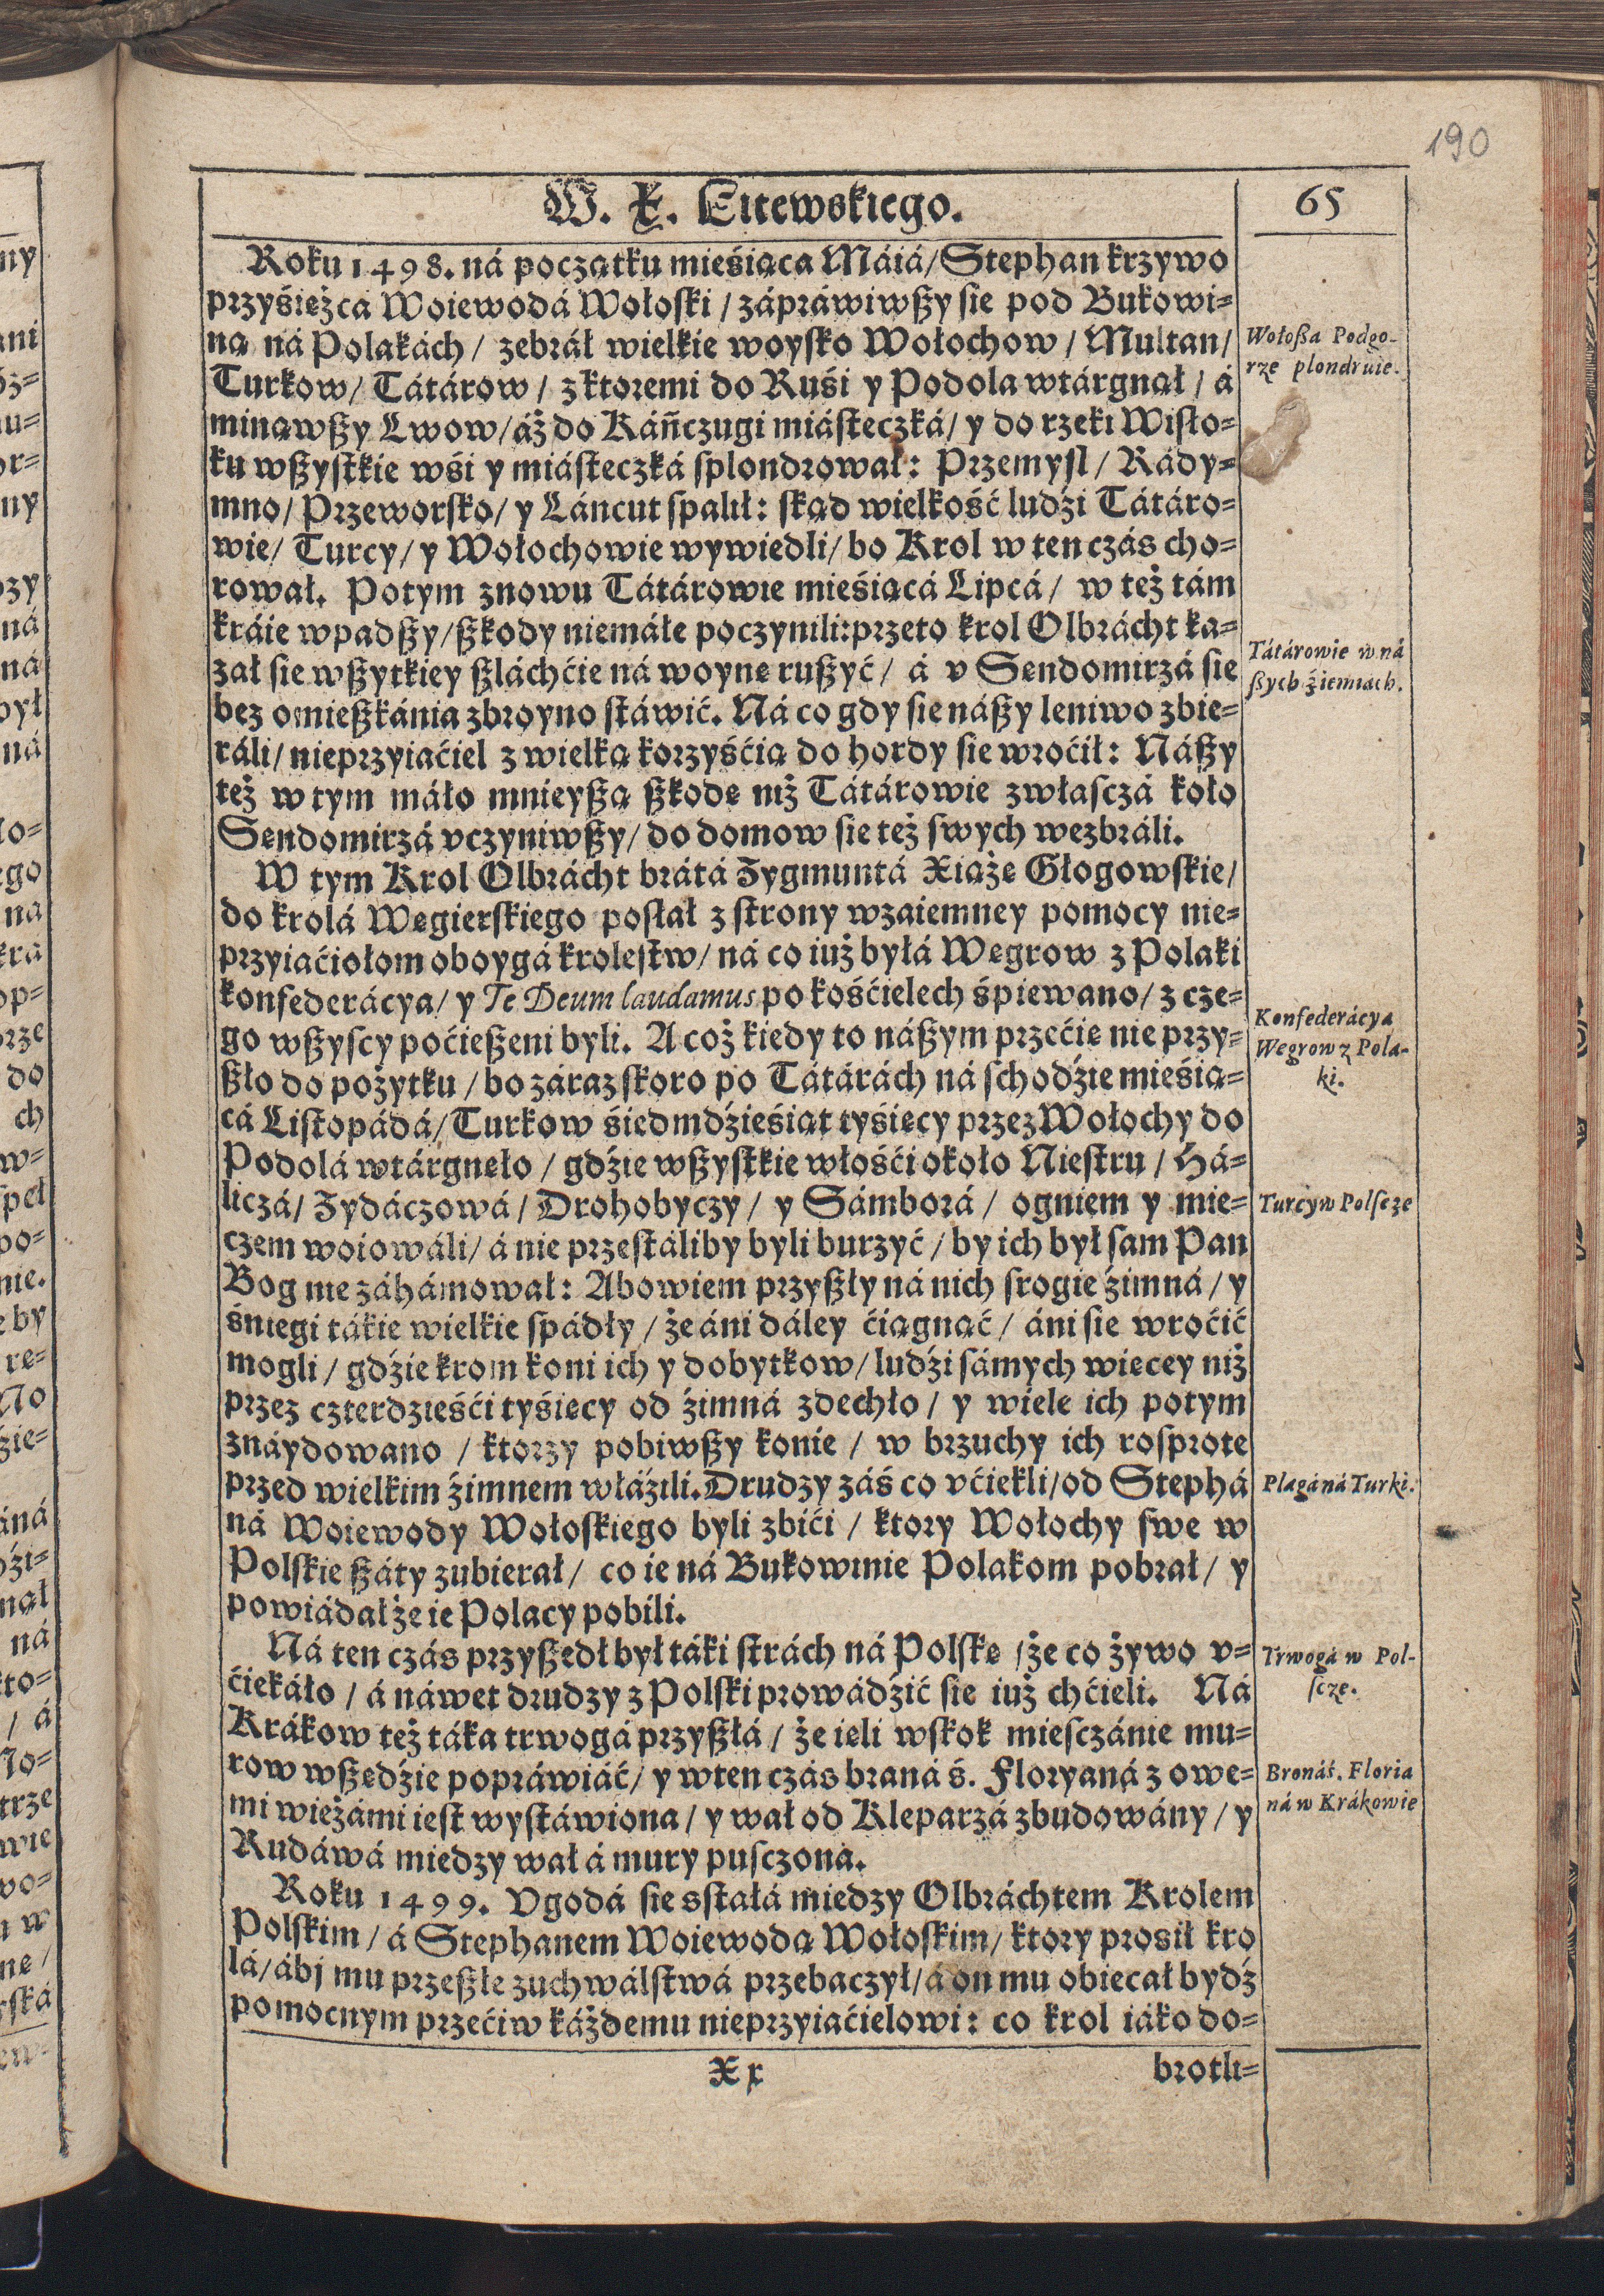 190
W. X. Litewskiego.
65
Roku 1498. ná początku mieśiąca Máiá / Stephan krzywo
przyśiężcá Woiewodá Wołoski / záprawiwßy sie pod Bukowi=
ną ná Polakách / zebráł wielkie woysko Wołochow / Multan /
Turkow / Tátárow / z ktoremi do Ruśi y Podola wtárgnął / á
minąwßy Lwow / áż do Káńczugi miásteczká / y do rzeki Wisło=
ku wßystkie wśi y miásteczká splondrował: Przemysl / Rády=
mno / Przeworsko / y Láncut spalił: skąd wielkość ludźi Tátáro=
wie / Turcy / y Wołochowie wywiedli / bo Krol w ten czás cho=
rował. Potym znowu Tátárowie mieśiącá Lipcá / w też tám
kráie wpadßy / ßkody niemáłe poczynili: przeto krol Olbrácht ka=
zał sie wßytkiey ßláchćie ná woynę rußyć / á v Sendomirzá sie
bez omießkánia zbroyno stáwić. Ná co gdy sie náßy leniwo zbie=
ráli / nieprzyiaćiel z wielką korzyśćią do hordy sie wroćił: Náßy
też w tym máło mnieyßą ßkodę niż Tátárowie zwłasczá koło
Sendomirzá vczyniwßy / do domow sie też swych wezbráli.
W tym Krol Olbrácht brátá Zygmuntá Xiążę Głogowskie /
do krolá Węgierskiego posłał z strony wzaiemney pomocy nie=
przyiaćiołom oboygá krolestw / ná co iuż byłá Węgrow z Polaki
konfederácya / y Te Deum laudamus po kośćielech śpiewano / z cze=
go wßyscy poćießeni byli. A coż kiedy to náßym przećię nie przy=
ßło do pożytku / bo záraz skoro po Tátárách ná schodźie mieśią=
cá Listopádá / Turkow śiedmdźieśiąt tyśięcy przez Wołochy do
Podolá wtárgnęło / gdźie wßystkie włośći około Niestru / Há=
liczá / Zydáczowá / Drohobyczy / y Sámborá / ogniem y mie=
czem woiowáli / á nie przestáliby byli burzyć / by ich był sam Pan
Bog nie záhámował: Abowiem przyßły ná nich srogie źimná / y
śniegi tákie wielkie spádły / że áni dáley ćiągnąć / áni sie wroćić
mogli / gdźie krom koni ich y dobytkow / ludźi sámych więcey niż
przez czterdzieśći tyśięcy od źimná zdechło / y wiele ich potym
znáydowano / ktorzy pobiwßy konie / w brzuchy ich rosprote
przed wielkim źimnem włáźili. Drudzy záś co vćiekli / od Stephá
ná Woiewody Wołoskiego byli zbići / ktory Wołochy swe w
Polskie ßáty zubierał / co ie ná Bukowinie Polakom pobrał / y
powiádał że ie Polacy pobili.
Ná ten czás przyßedł był táki strách ná Polskę / że co żywo v=
ćiekáło / á náwet drudzy z Polski prowádźić sie iuż chćieli. Ná
Krákow też táka trwogá przyßłá / że ięli wskok miesczánie mu=
row wßędźie popráwiáć / y wten czás braná ś. Floryaná z owe=
mi wieżámi iest wystáwiona / y wał od Kleparzá zbudowány / y
Rudáwá miedzy wał á mury pusczona.
Roku 1499. Vgodá sie sstałá miedzy Olbráchtem Krolem
Polskim / á Stephanem Woiewodą Wołoskim / ktory prosił kro
lá / ábj mu przeßłe zuchwálstwá przebaczył / á on mu obiecał bydź
pomocnym przećiw káżdemu nieprzyiaćielowi: co krol iáko do=
Xx
brotli=
Wołoßa Podgo-
rze plondruie.
Tátárowie w ná
ßych źiemiách.
Konfederácya
Węgrow z Pola-
ki.
Turcy w Polscze
Plagá ná Turki.
Trwogá w Pol-
scze.
Broná ś. Floria
ná w Krákowie